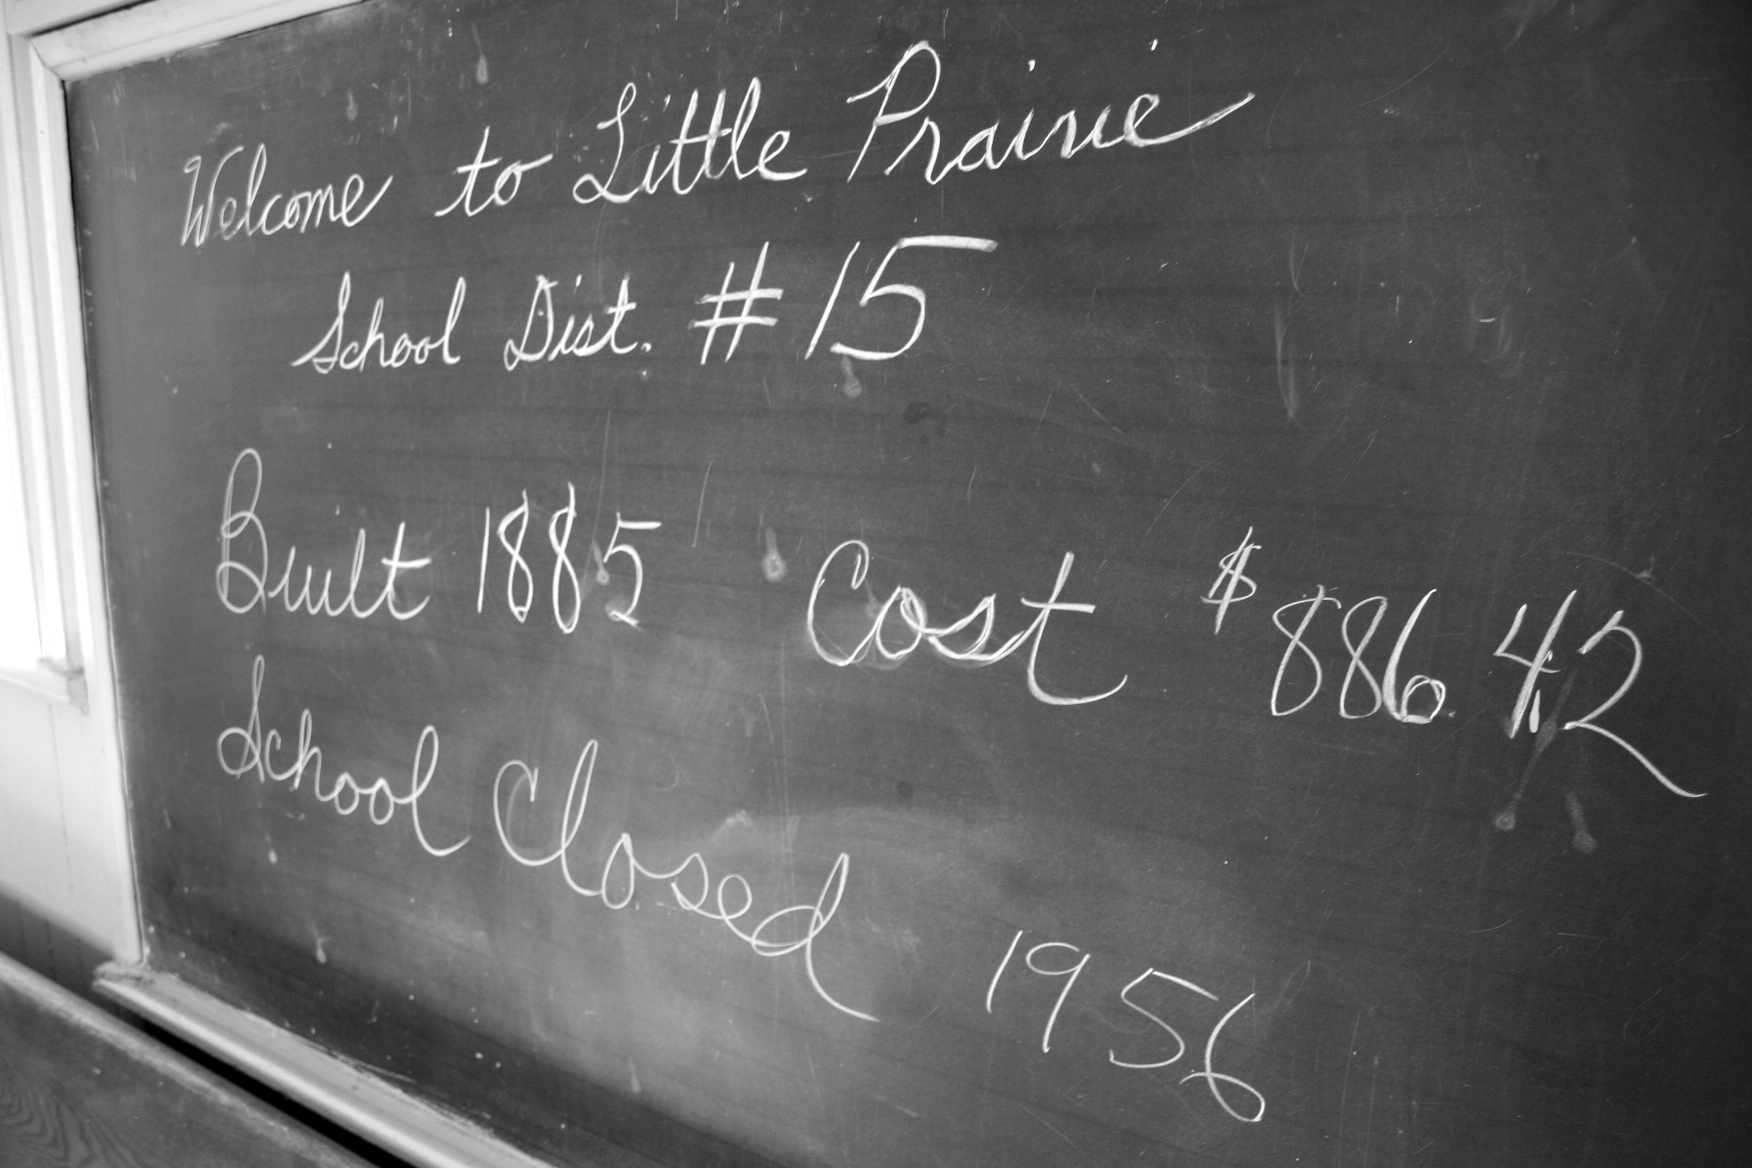 Welcome to Little Prairie
School Dist. #15
Built 1885 Cost $886.42
School Closed 1956